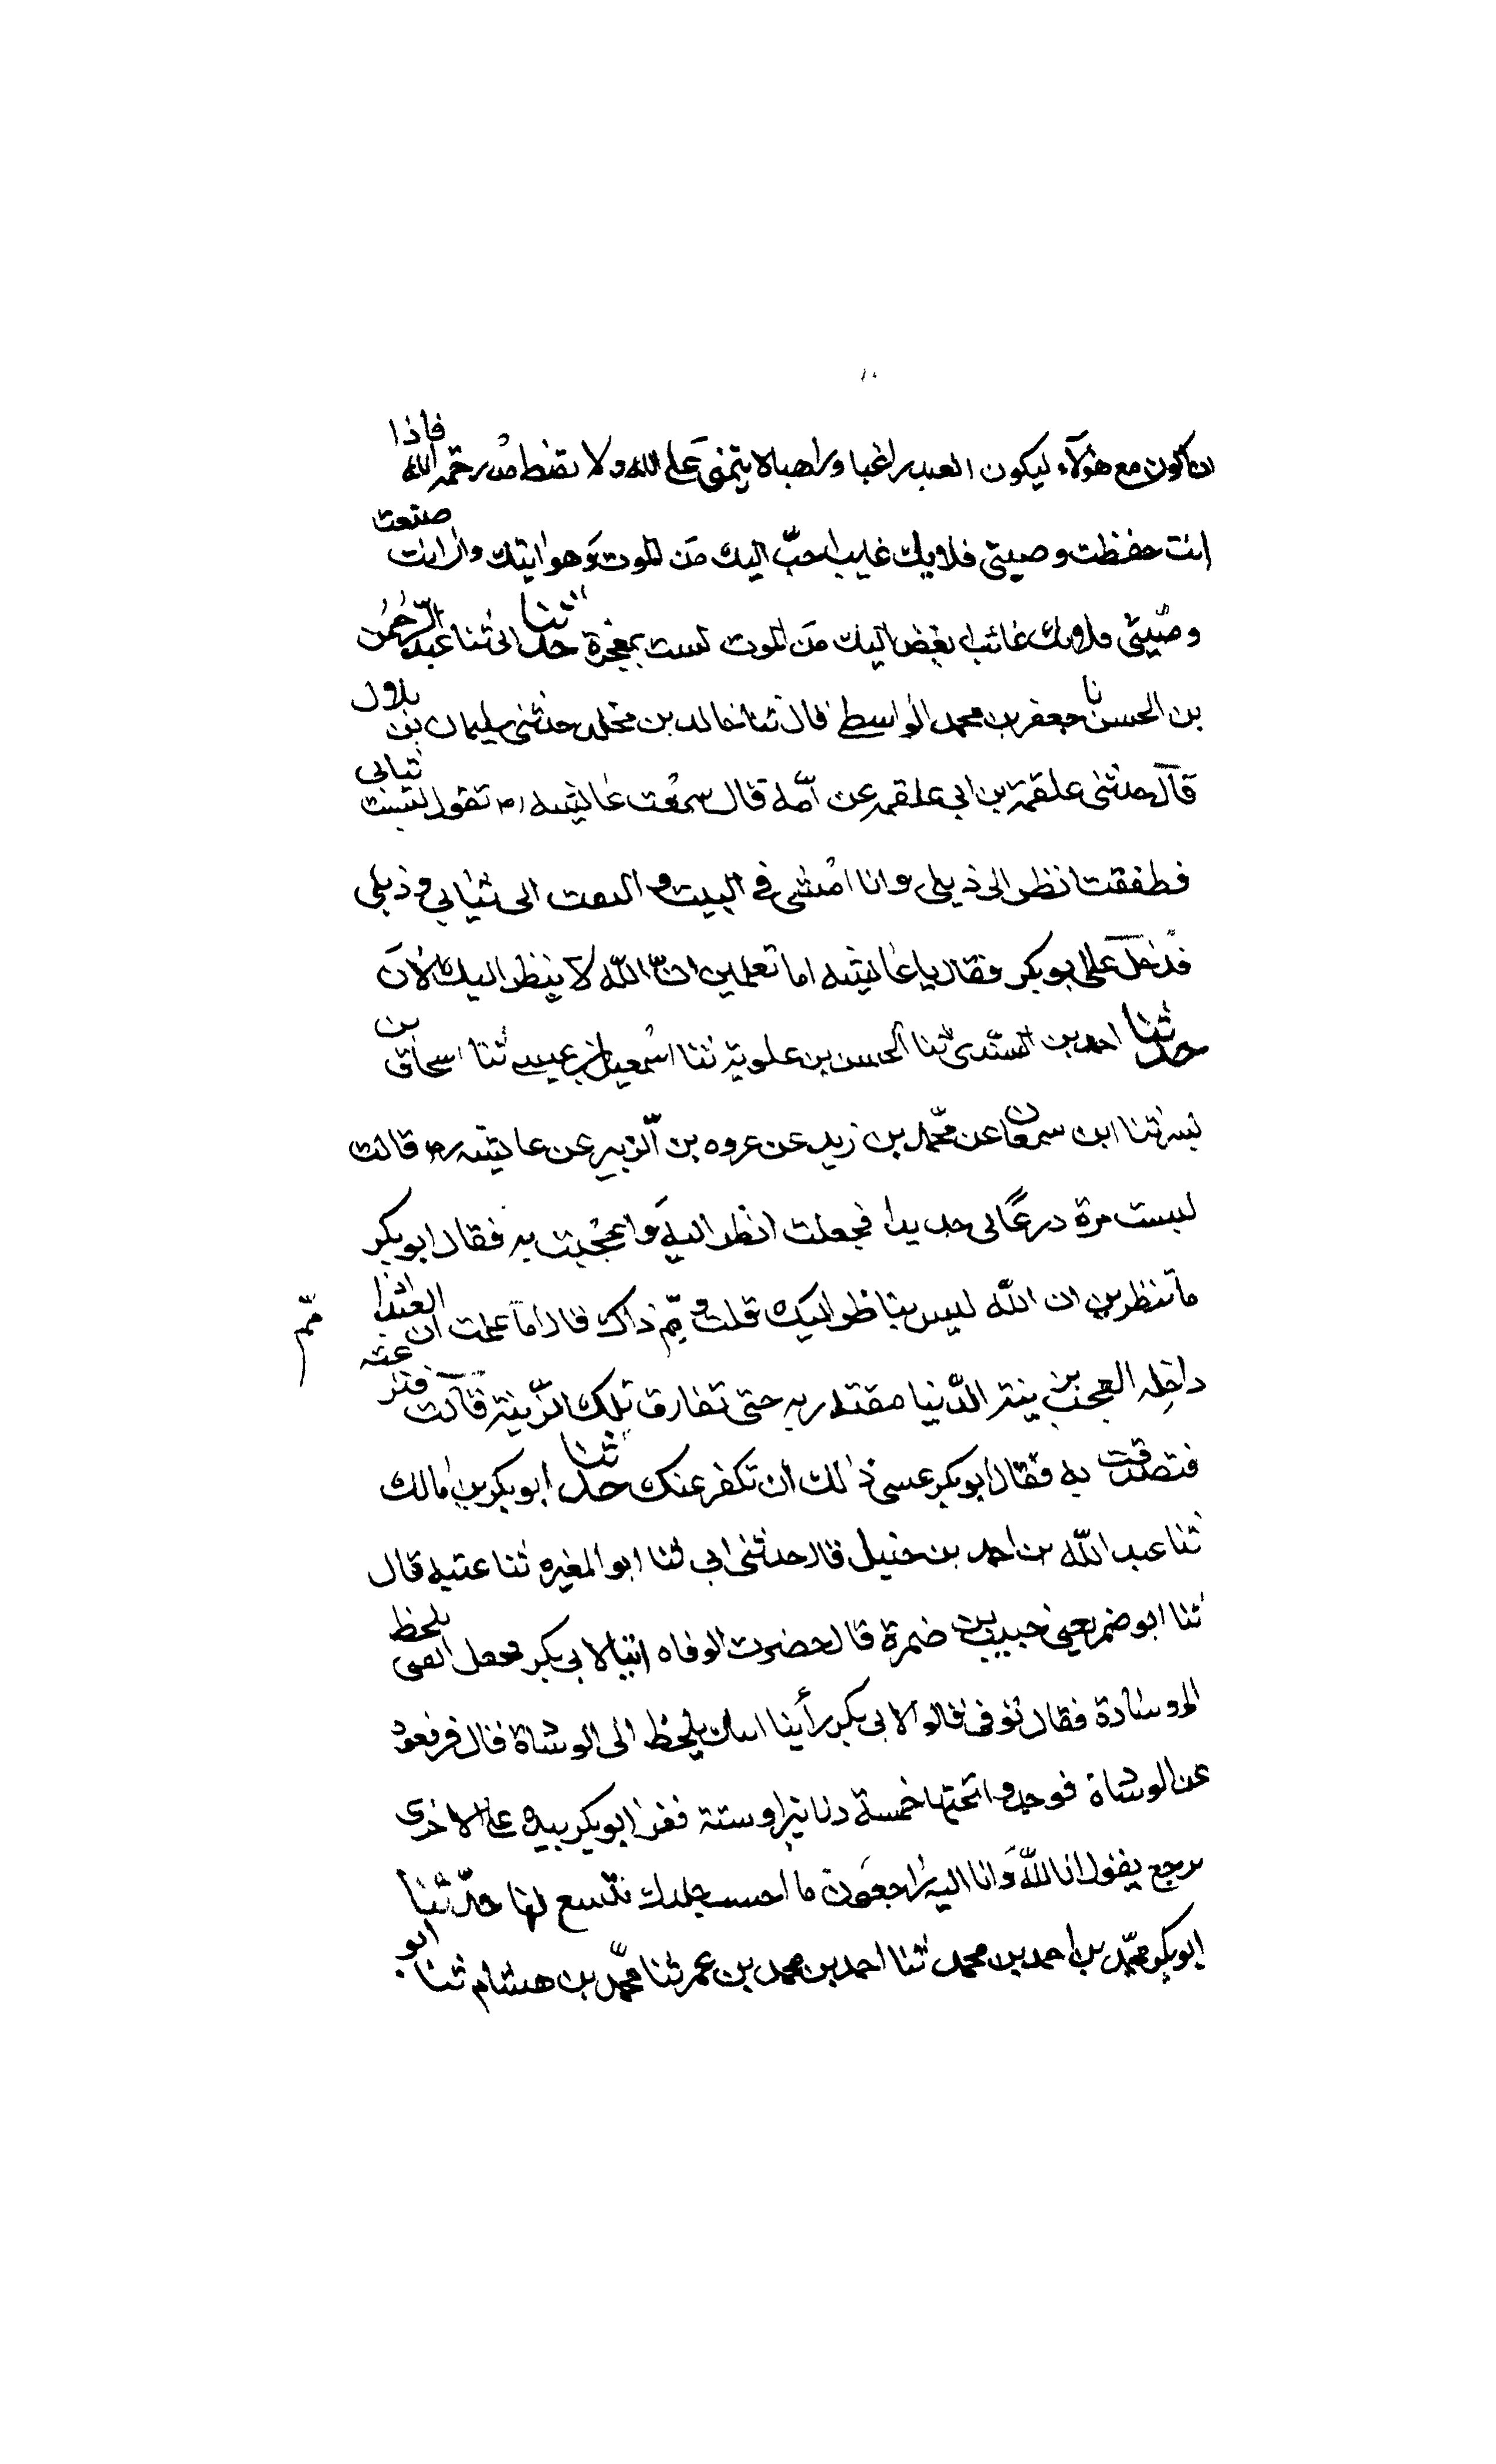 ان اكون مع هؤلاء ليكون العبد راغبا وراهبا لا يتمنى على الله ولا يقنط من رحمة الله فاذا
انت حفظت وصيتي فلا يك غايب احب اليك من الموت وهو اتيك وان انت صنعت
وصيتي فلا يك غائب ابغض اليك من الموت لست بمعجزة حدثنا ابي ثنا عبد الرحمن
بن الحسن نا جعفر بن محمد الواسطي قال ثنا خالد بن مخلد حدثني سليمان بن بلال
قال حدثني علقمة بن ابي علقمه عن امه قال سمعت عائشه رض تقول لبست ثيابي
فطفقت انظر الى ذيلي وانا امشي في البيت والتفت الى ثيابي وذيلي
فدخل علي ابو بكر فقال يا عائشه اما تعلمين ان الله لا ينظر اليك الان
حدثنا احمد بن السندي ثنا الحسن بن علوية ثنا اسمعيل بن عيسى ثنا اسحاق بن
بشر ثنا ابن سمعان عن محمد بن زيد عن عروه بن الزبير عن عايشه رض قالت
لبست مرة درعا لي جديدا فجعلت انظر اليه واعجبت به فقال ابو بكر
ما تنظرين ان الله ليس بناظر اليك قلت ومم ذاك قال اما علمت ان العبد اذا
مم
داخله العجب بزينة الدنيا مقته ربه حتى تفارق تلك الزينة قالت فنزعته
فتصدقت به فقال ابو بكر عسى ذلك ان تكفر عنك حدثنا ابو بكر بن مالك
ثنا عبد الله بن احمد بن حنبل قال حدثني ابي ثنا ابو المغيره ثنا عتبه قال
ثنا ابو ضمر يعني حبيب بن ضمرة قال حضرت الوفاه ابنا لابي بكر فجعل الفتى يلحظ
الى وسادة فقال توفي قالوا لابي بكر رأينا ابنك يلحظ الى الوسادة قال فرفعوه
عن الوسادة فوجدوا تحتها خمسة دنانير او ستة فضرب ابو بكر بيده على الاخرى
يرجع يقول انا لله وانا اليه راجعون ما احسب جلدك تتسع لها حدثنا
ابو بكر محمد بن احمد بن محمد ثنا احمد بن محمد بن عمر ثنا محمد بن هشام ثنا ابو